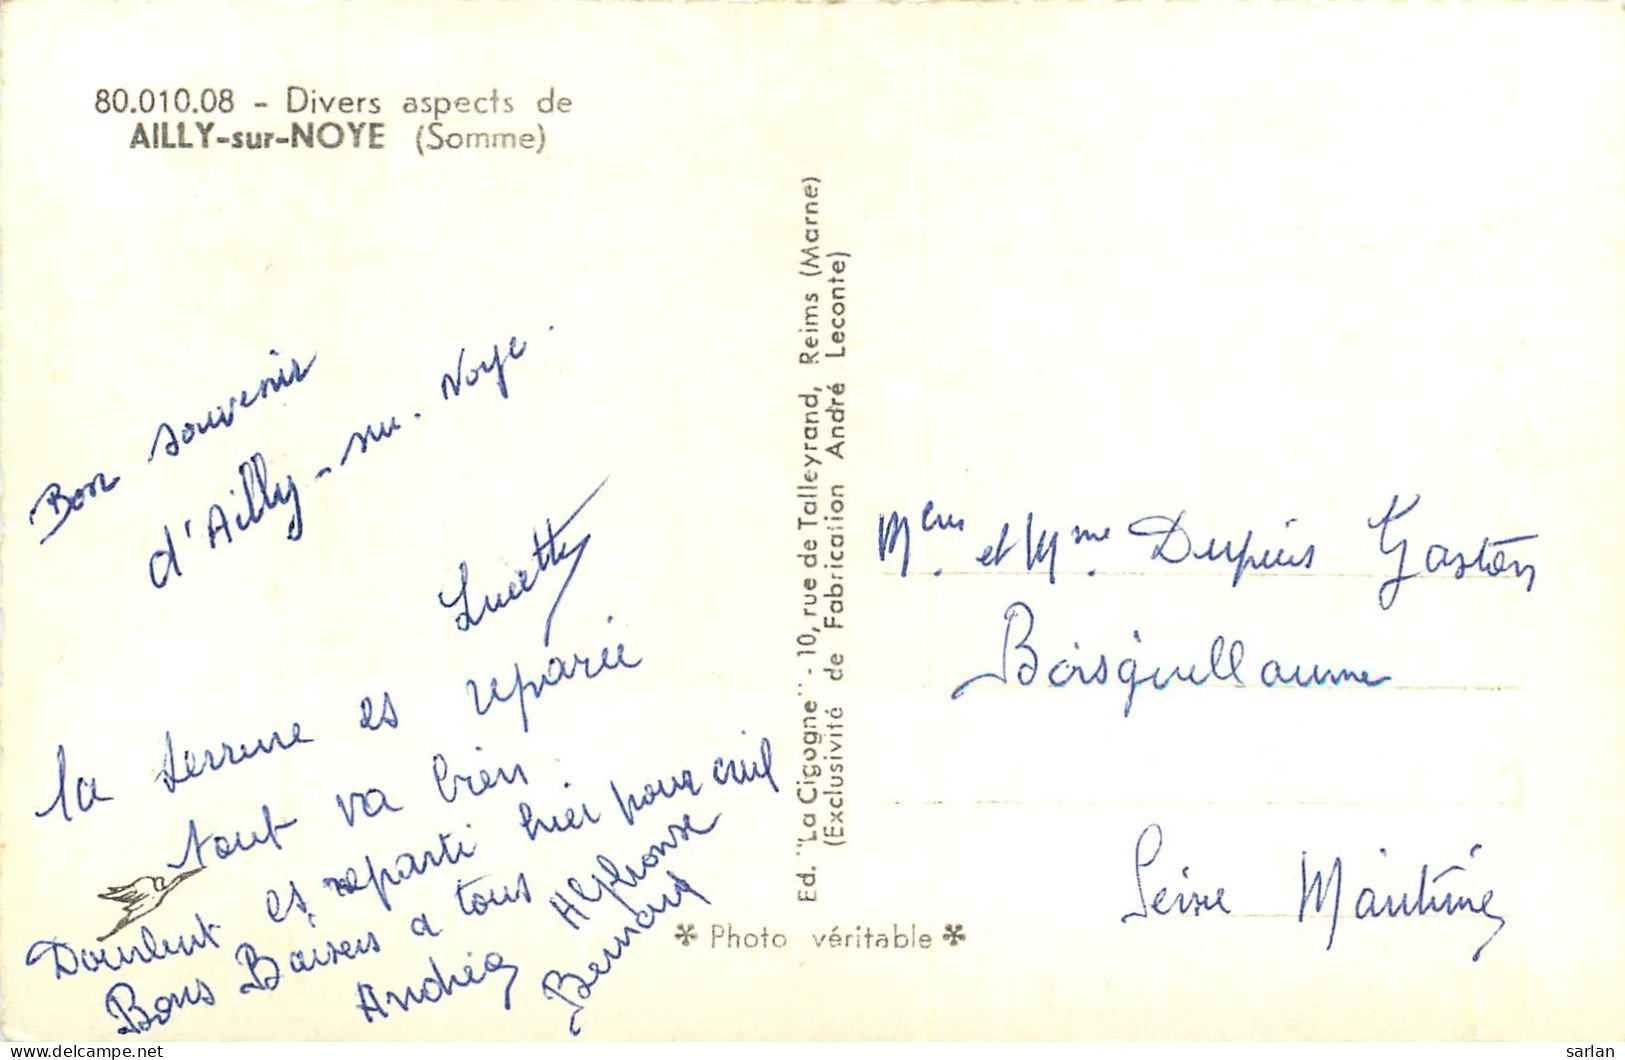 80.010.08 - Divers aspects de
AILLY-sur-NOYE (Somme)
Bon souvenir
d'Ailly-sur-Noye.
Lucette
la terrine es reparée
tout va bien.
es reparti hier pour
Bons Baisers a tous
Andréa Alphonse
Bernard
Ed. "La Cigogne" - 10, rue de Talleyrand, Reims (Marne)
(Exclusivité de Fabrication André Leconte)
* Photo véritable *
et Mme Dupuis Gaston
Boisguillaume
Seine Maritime
sarlan